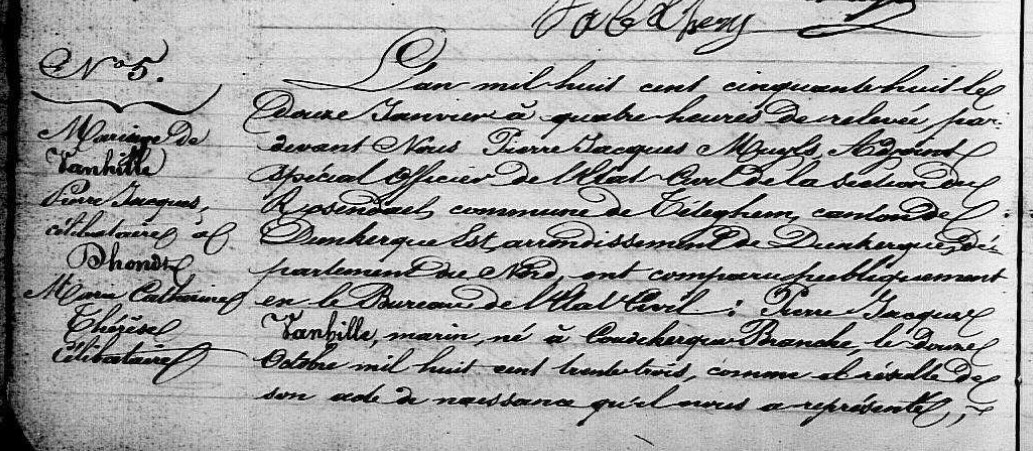 N° 5.
Mariage de
Vanhille
Pierre Jacques,
célibataire et
Dhondt
Marie Catherine
Thérèse
Célibataire
L'an mil huit cent cinquante huit le
douze Janvier à quatre heures de relevée, par-
devant Nous Pierre Jacques Adjoint
spécial officier de l'Etat Civil de la section de
Rosendael, commune de Téteghem, canton de
Dunkerque Est, arrondissement de Dunkerque, dé-
partement du Nord, ont comparu publiquement
en le Bureau de l'Etat Civil : Pierre Jacques
Vanhille, marin, né à Coudekerque Branche, le douze
Octobre mil huit cent trente trois, comme il résulte de
son acte de naissance qu'il nous a représenté,